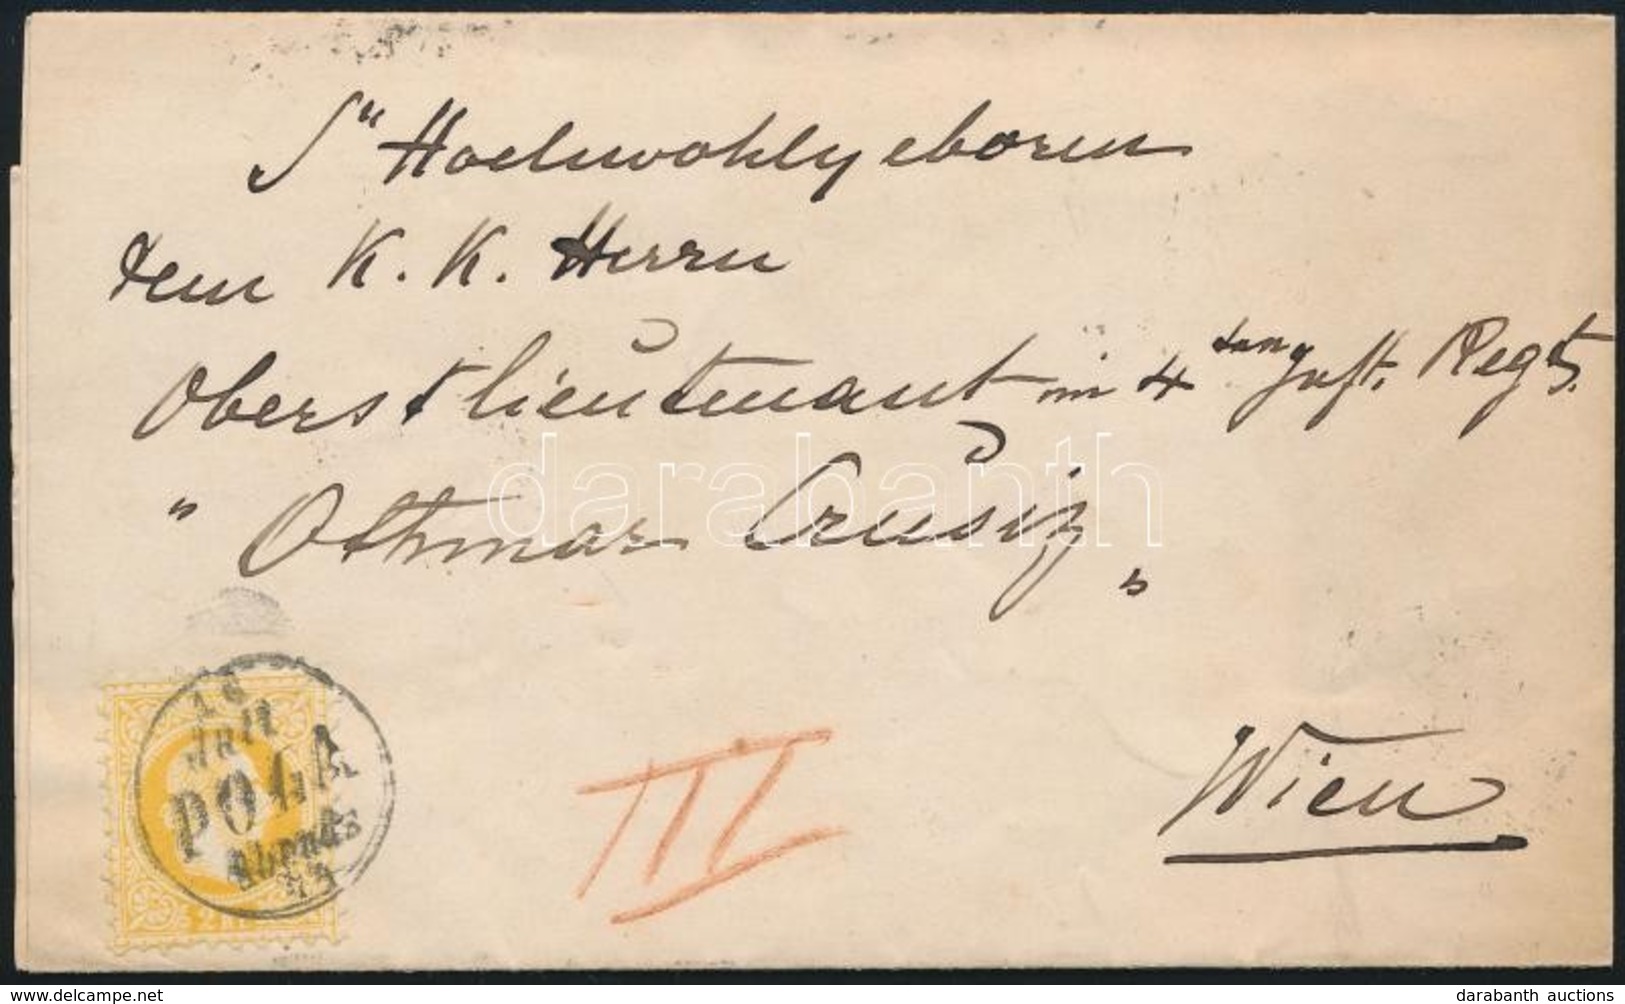 Sr Hochwohlgeboren
dem K. K. Herrn
Oberstlieutenant im 4ten Inft. Regts.
" Othmar Crusiz "
Wien
III
18
Juli
POLA
Abends
73
2 kr
darabanth
delcampe.net
darabanth auctions